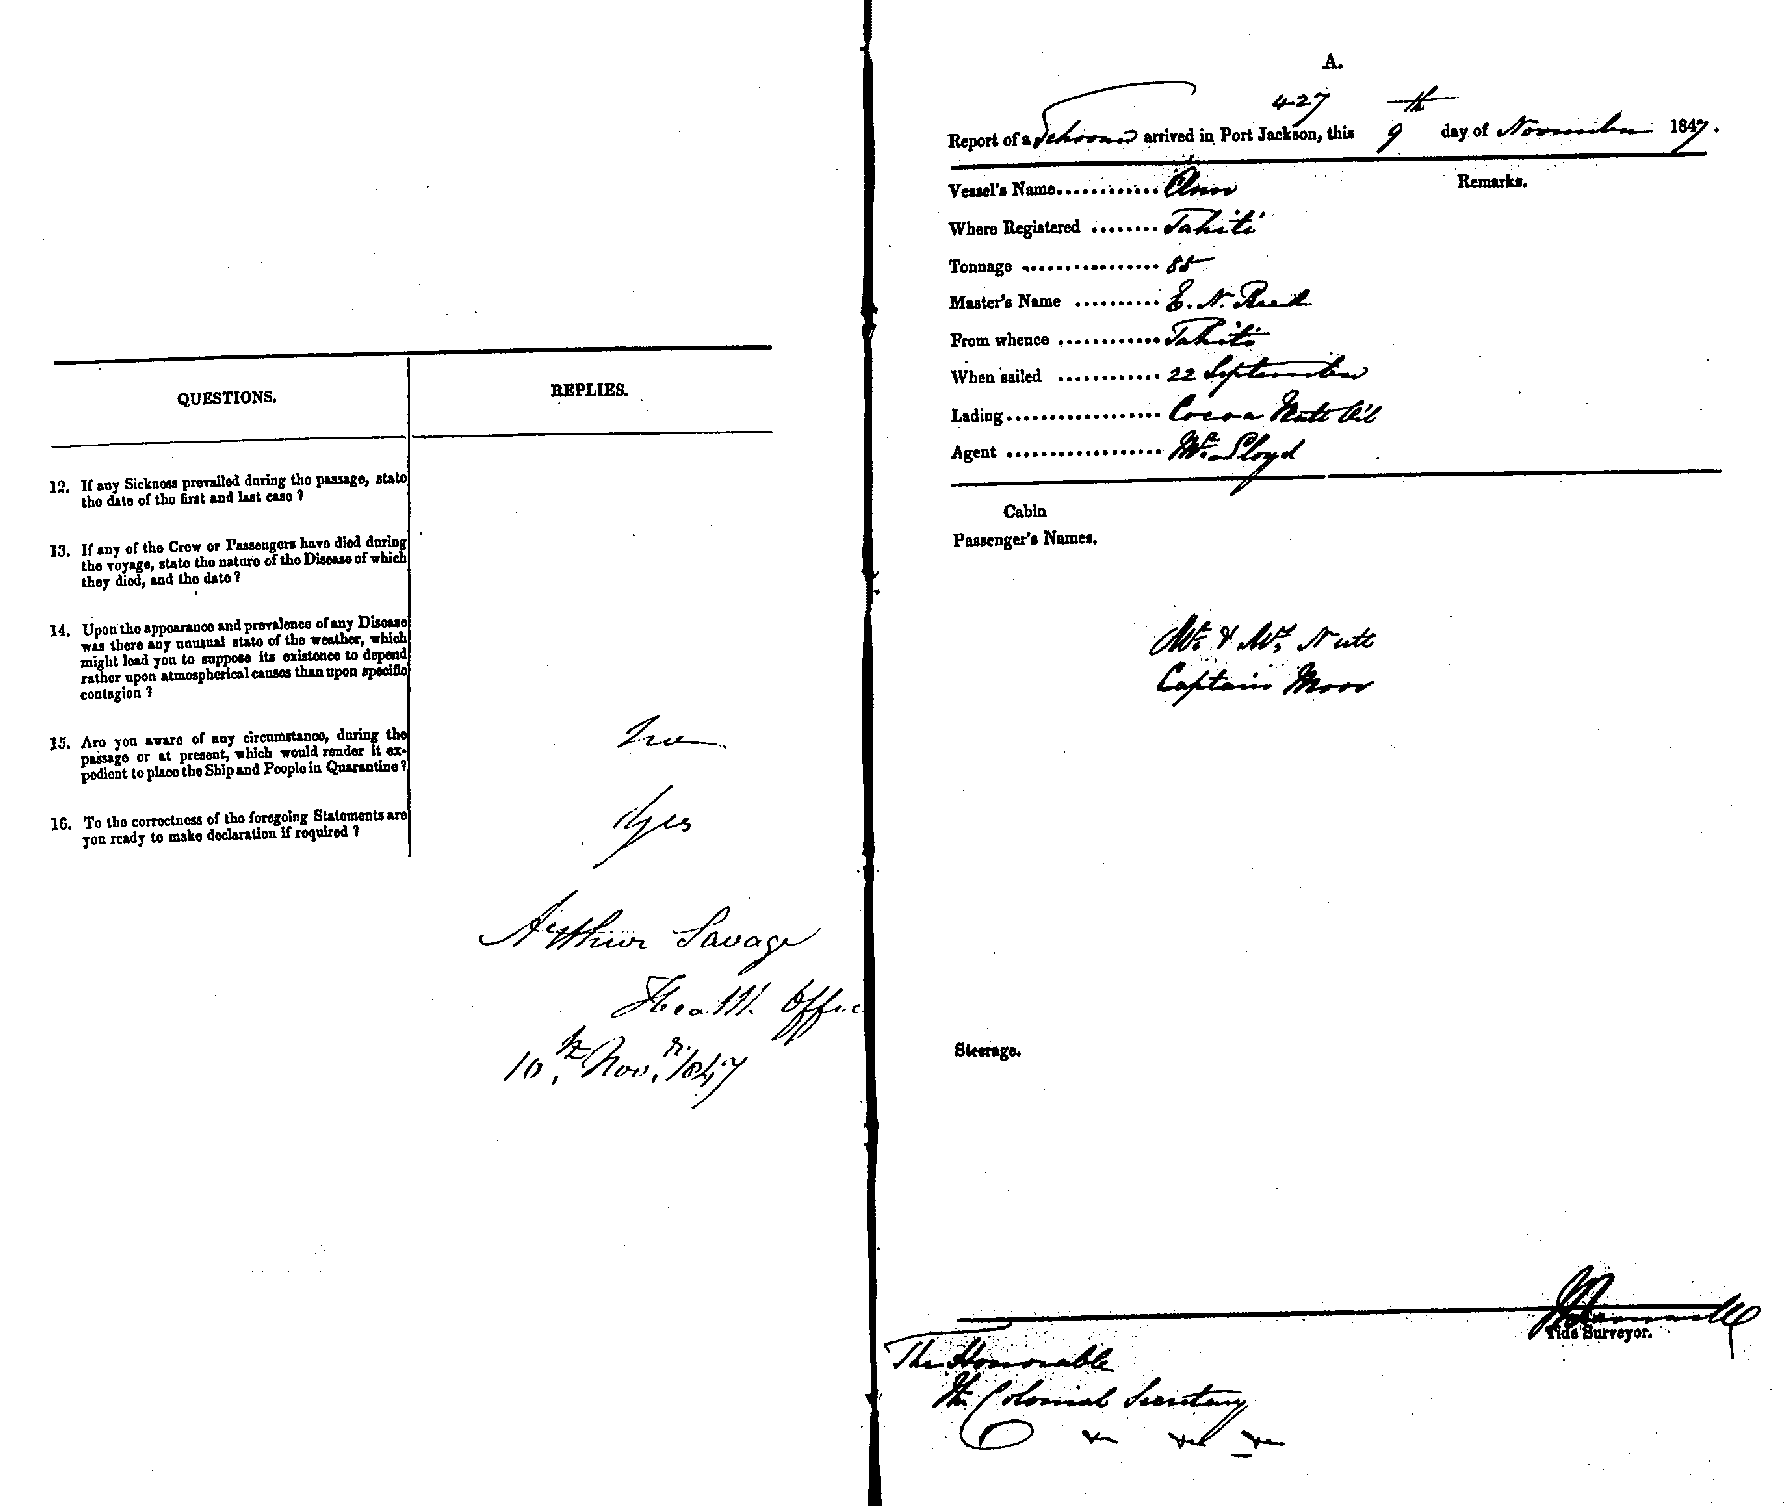 QUESTIONS.
REPLIES.
12. If any Sickness prevailed during the passage, state
the date of the first and last case ?
13. If any of the Crew or Passengers have died during
the voyage, state the nature of the Disease of which
they died, and the date ?
14. Upon the appearance and prevalence of any Disease
was there any unusual state of the weather, which
might lead you to suppose its existence to depend
rather upon atmospherical causes than upon specific
contagion ?
15. Are you aware of any circumstance, during the
passage or at present, which would render it ex-
pedient to place the Ship and People in Quarantine ?
No
16. To the correctness of the foregoing Statements are
you ready to make declaration if required ?
Yes
Arthur Savage
Health Offic
10th Novr. 1847
A.
427
Report of a Schooner arrived in Port Jackson, this 9th day of November 1847.
Remarks.
Vessel's Name............ Ann
Where Registered ........ Tahiti
Tonnage ................ 85
Master's Name .......... E. N. Reed
From whence ............ Tahiti
When sailed ............ 22 September
Lading.................. Cocoa Nutt Oil
Agent .................. Mr. Lloyd
Cabin
Passenger's Names.
Mr. & Mrs. Nutt
Captain Moor
Steerage.
Tide Surveyor.
The Honorable
The Colonial Secretary
&c &c &c